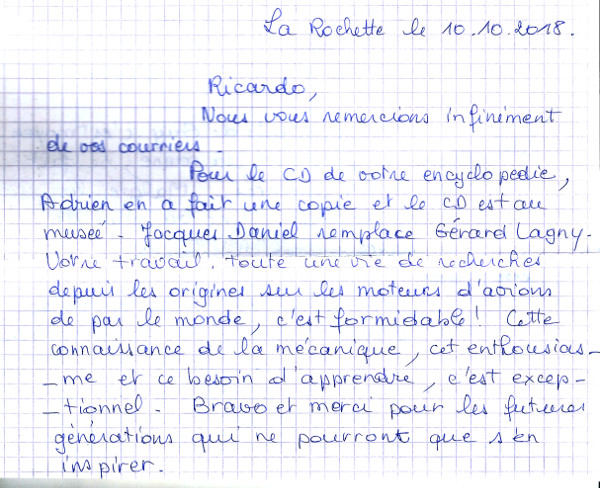 La Rochette le 10.10.2018.
Ricardo,
Nous vous remercions infiniment
de vos courriers.
Pour le CD de votre encyclopedie,
Adrien en a fait une copie et le CD est au
museé. Jacques Daniel remplace Gérard Lagny.
Votre travail. toute une vie de recherches
depuis les origines sur les moteurs d'avions
de par le monde, c'est formidable! Cette
connaissance de la mécanique, cet enthousias-
-me et ce besoin d'apprendre, c'est excep-
-tionnel. Bravo et merci pour les futures
générations qui ne pourront que s'en
inspirer.